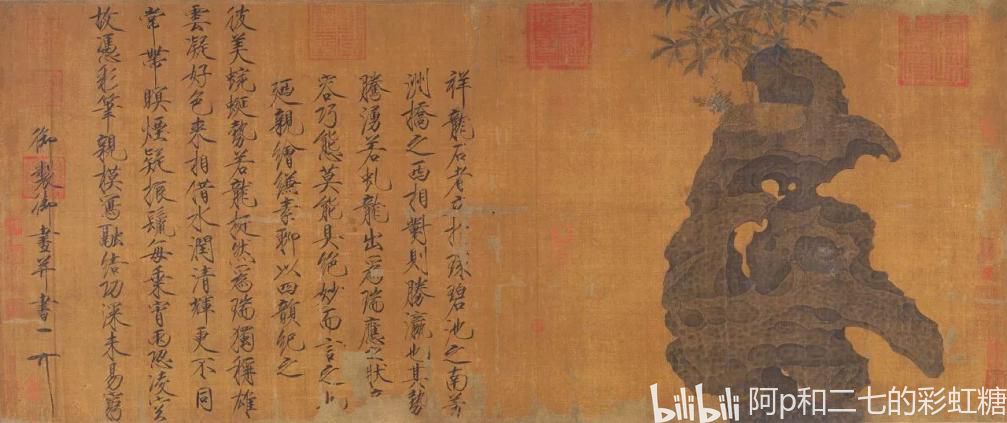 祥龍石者立於環碧池之南芳
洲橋之西相對則勝瀛也其勢
騰湧若虬龍出爲瑞應之狀奇
容巧態莫能具絕妙而言之也
廼親繪縑素聊以四韻紀之
彼美蜿蜒勢若龍挺然爲瑞獨稱雄
雲凝好色來相借水潤清輝更不同
常帶暝煙疑振鬣每乘宵雨恐凌空
故憑彩筆親模寫融結功深未易窮
御製御畫并書
bilibili 阿p和二七的彩虹糖